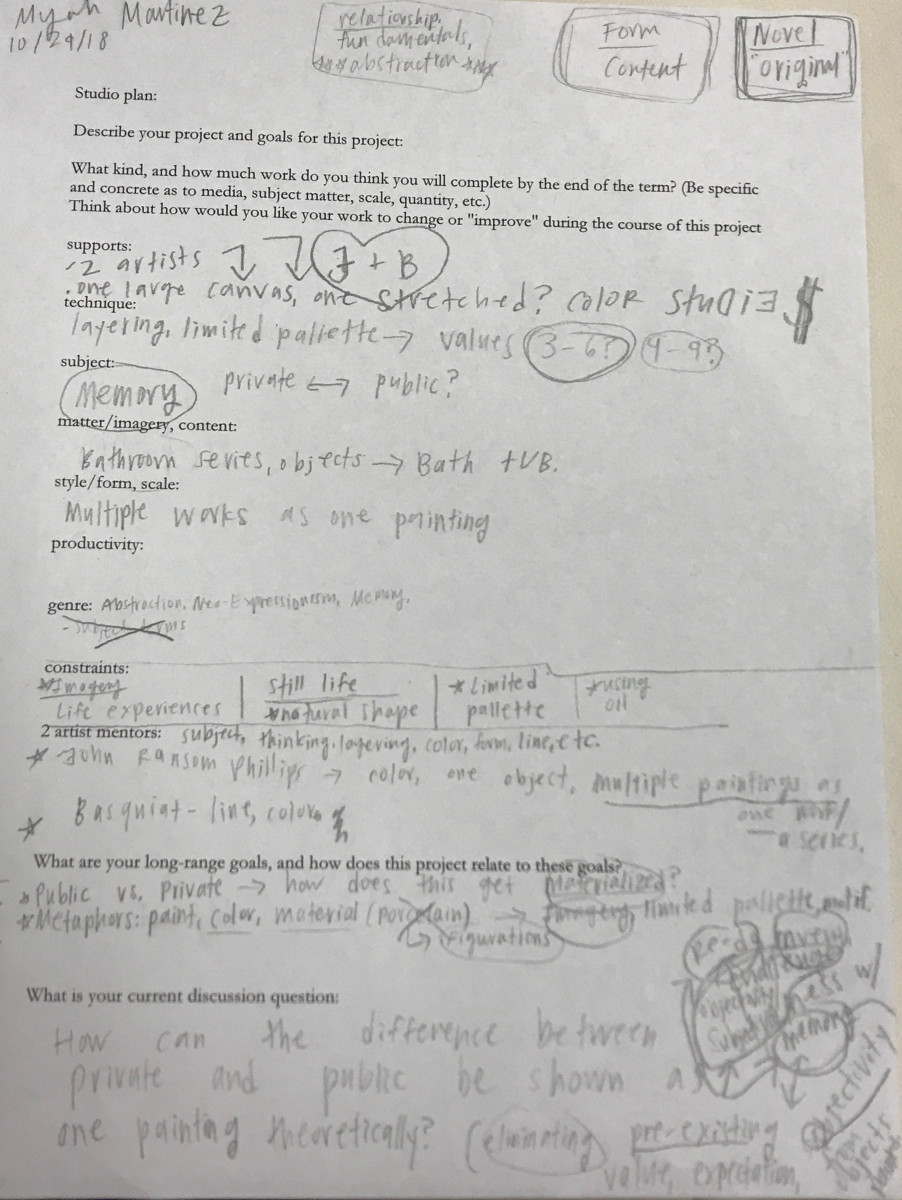 Myah Martinez
10/29/18
relationship,
fundamentals,
***abstraction***
Form
Content
Novel
"original"
Studio plan:
Describe your project and goals for this project:
What kind, and how much work do you think you will complete by the end of the term? (Be specific
and concrete as to media, subject matter, scale, quantity, etc.)
Think about how would you like your work to change or "improve" during the course of this project
supports:
2 artists J + B
. one large canvas, one stretched? color studiE$
technique:
layering, limited pallette → values 3-6? 4-9?
subject:
Memory private ↔ public?
matter/imagery, content:
Bathroom series, objects → Bath tUB.
style/form, scale:
Multiple works as one painting
productivity:
genre: Abstraction, Neo-Expressionism, Memory.
constraints:
*Imagery
Life experiences
still life
*natural shape
*Limited
pallette
*using
oil
2 artist mentors: subject, thinking, layering, color, form, line, etc.
* John Ransom Phillips → color, one object, multiple paintings as
one work/
a series.
* Basquiat - line, color
What are your long-range goals, and how does this project relate to these goals?
Public vs. Private → how does this get Materialized?
*Metaphors: paint, color, material (porcelain) → Imagery, limited pallette, motif.
↳ figurations
What is your current discussion question:
How can the difference between
private and public be shown as
one painting theoretically? (eliminating pre-existing
value, expectation,
ness w/
memory
objectivity
objects